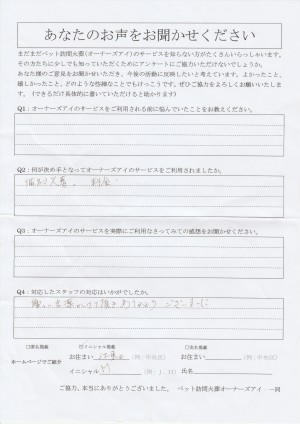 あなたのお声をお聞かせください
まだまだペット訪問火葬(オーナーズアイ)のサービスを知らない方がたくさんいらっしゃいます。
その方たちに少しでも知っていただくためにアンケートにご協力いただけないでしょうか。
あなた様のご意見をお聞かせいただき、今後の活動に反映したいと考えています。よかったこと、
嬉しかったこと、どのような些細なことでもけっこうです。ぜひご協力をよろしくお願いいたしま
す。(できるだけ具体的に書いていただけると助かります)
Q1:オーナーズアイのサービスをご利用される前に悩んでいたことをお教えください。
Q2:何が決め手となってオーナーズアイのサービスをご利用されましたか。
個別火葬。 料金
Q3:オーナーズアイのサービスを実際にご利用なさってみての感想をお聞かせください。
Q4:対応したスタッフの対応はいかがでしたか。
優しい言葉かけて頂きありがとうございました
□実名掲載 ☑イニシャル掲載 □匿名掲載
お住まい 江東区 (例:中央区) お住まい (例:中央区)
ホームページでご紹介
イニシャル (例:J.H) 氏名
ご協力、本当にありがとうございました。 ペット訪問火葬オーナーズアイ 一同